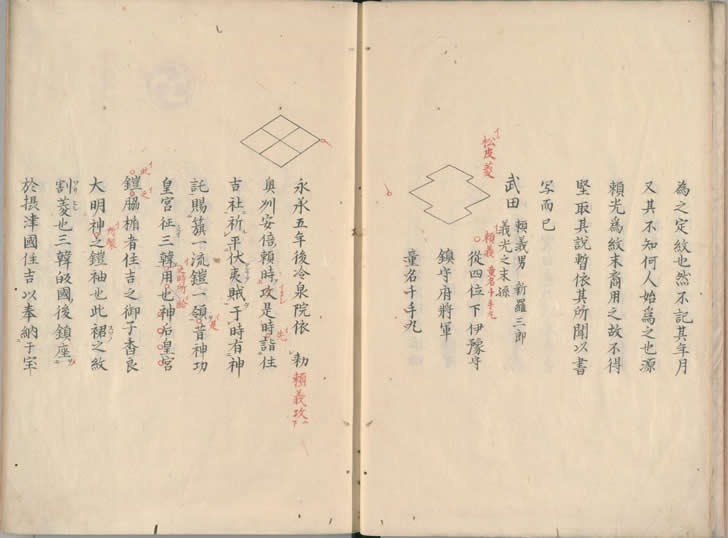 為之定紋也然不記其年月
又其不知何人始為之也源
頼光為紋末裔用之故不得
堅取其説暫依其所聞以書
写而已
松皮菱
武田 頼義男 新羅三郎
義光之末孫
頼義 童名千手丸
從四位下伊豫守
鎮守府將軍
童名千手丸
永承五年後冷泉院依 勅
頼義攻
奥州安倍頼時攻是時詣住
先
吉社祈平伏夷賊于時有神
託賜籏一流鎧一領昔神功
是
皇宮征三韓用也神后皇宮
之時所
鎧脇楯者住吉之御子香良
大明神之鎧袖也此裙之紋
割菱也三韓皈國後鎮座
於摂津國住吉以奉納于宝